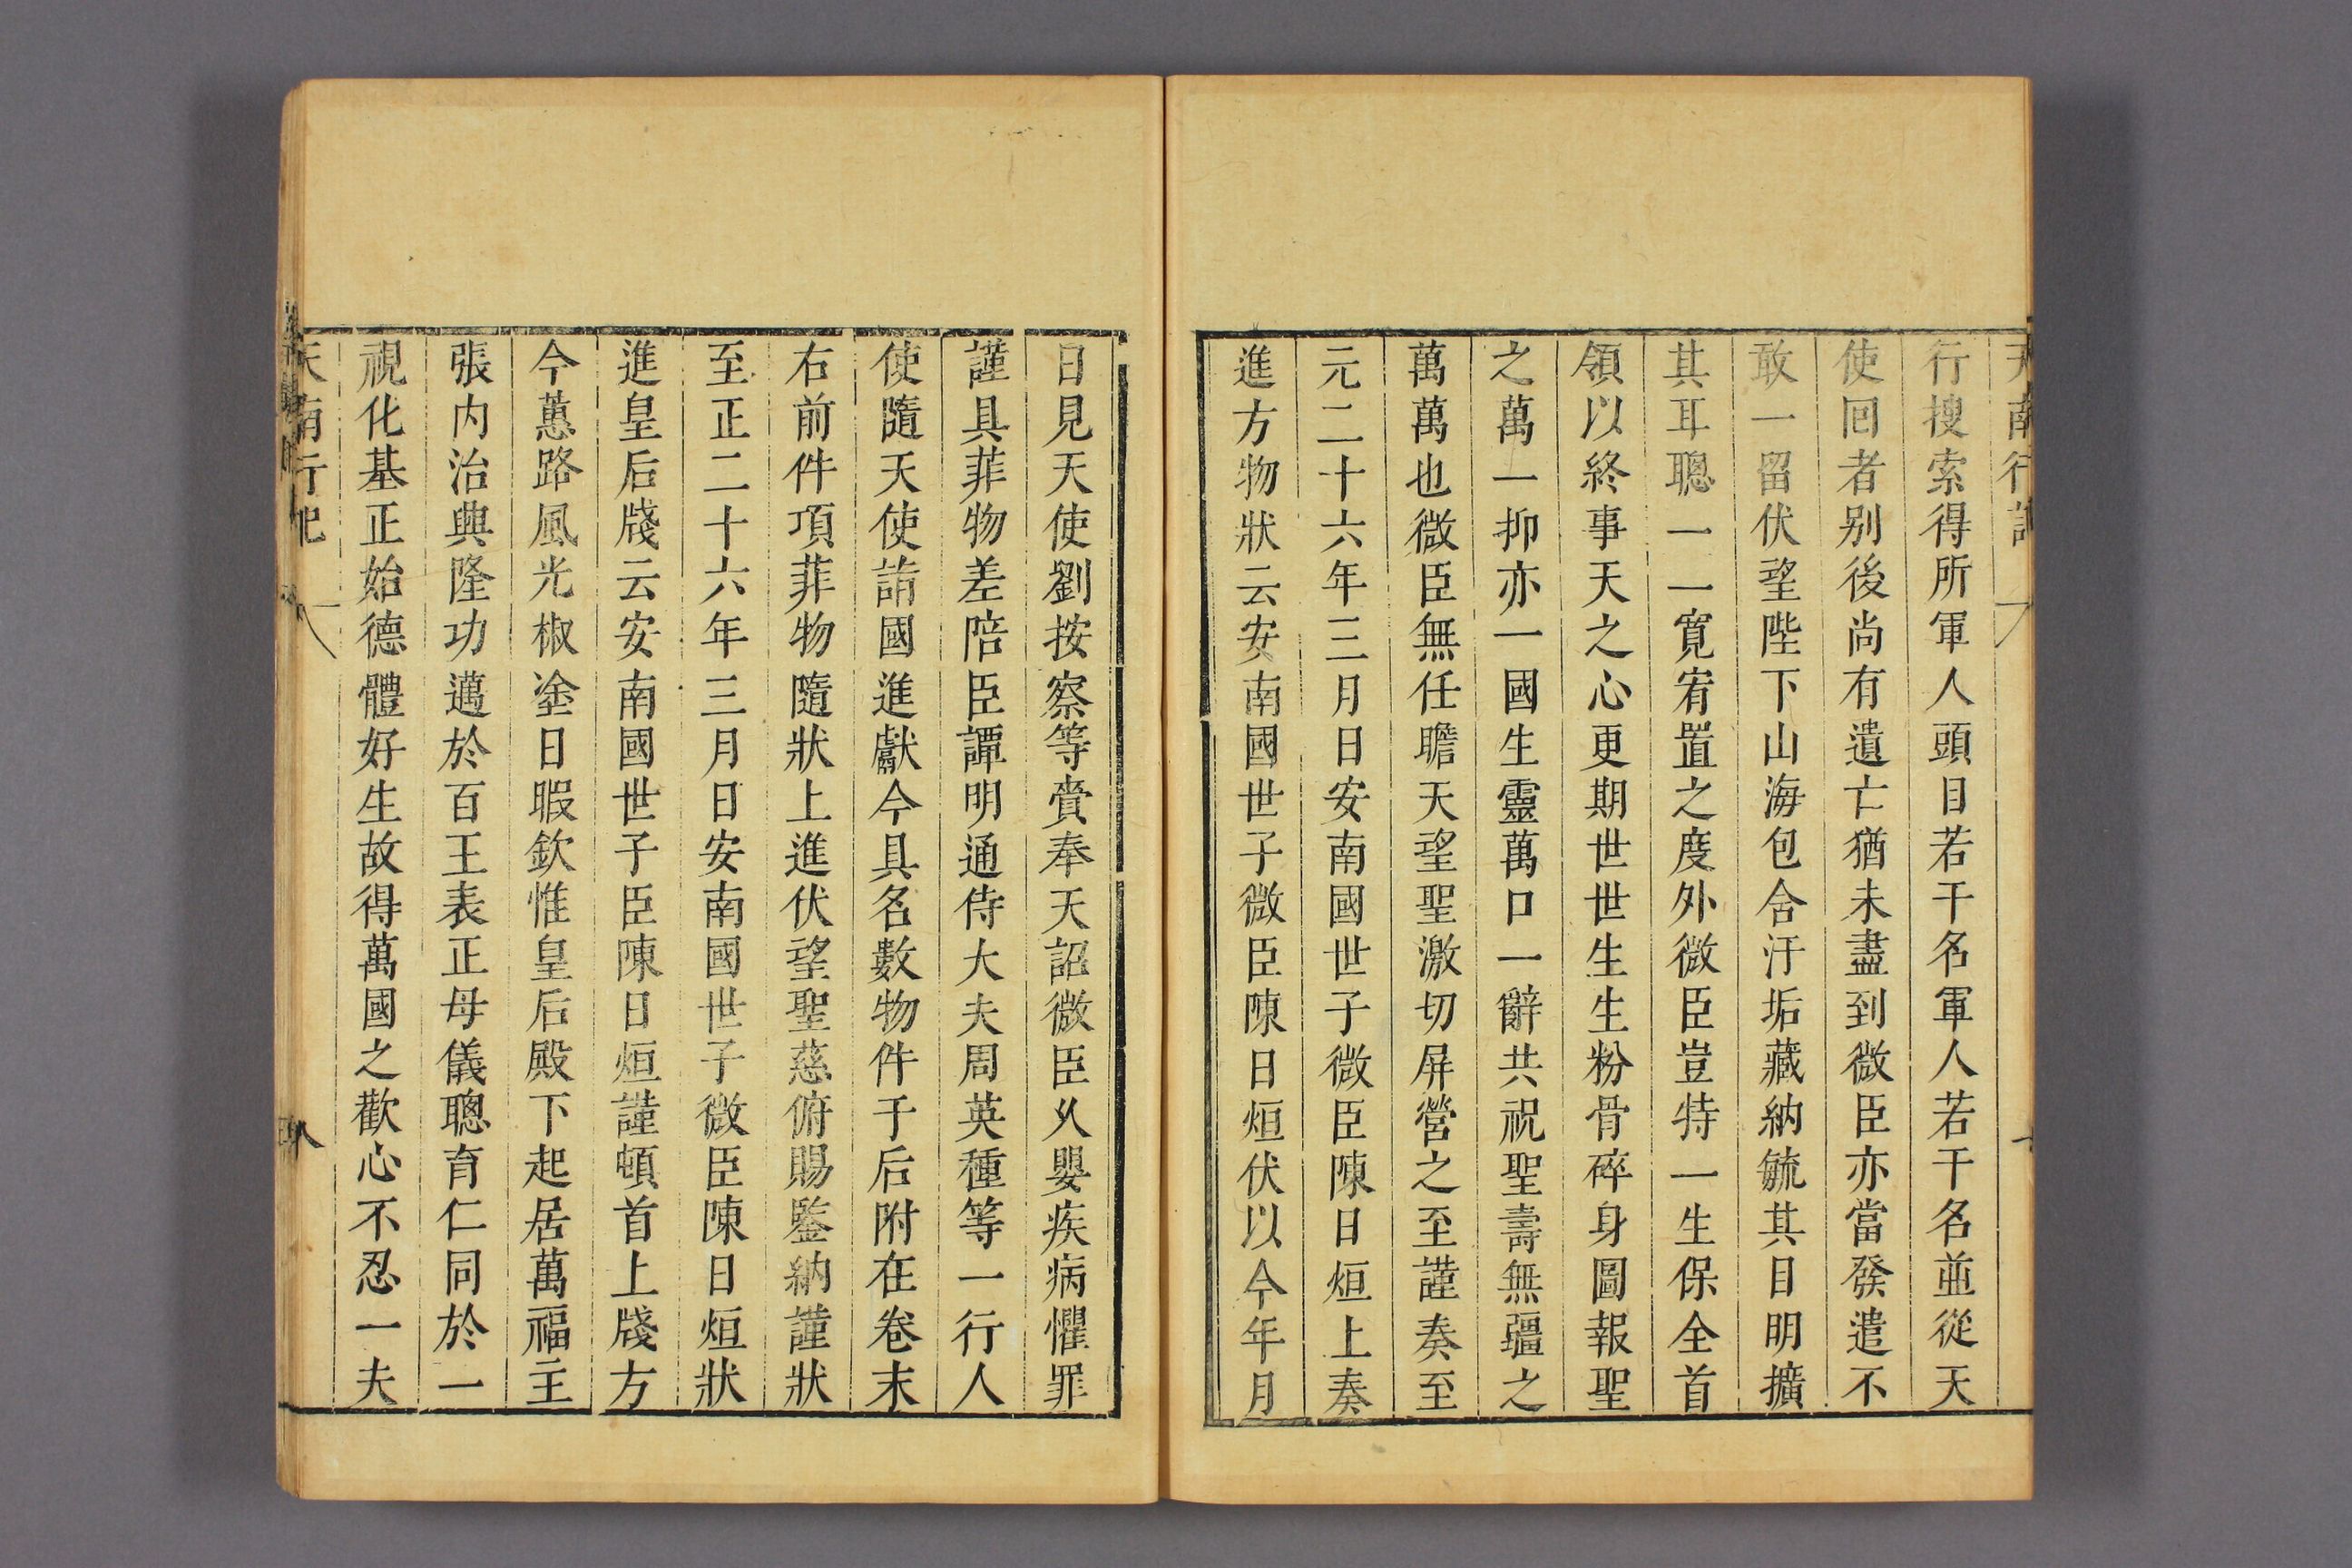 天南行記
行搜索得所軍人頭目若干名軍人若干名並從天
使回者别後尚有遺亡猶未盡到微臣亦當發遣不
敢一留伏望陛下山海包含汙垢藏納毓其目明擴
其耳聰一一寬宥置之度外微臣豈特一生保全首
領以終事天之心更期世世生生粉骨碎身圖報聖
之萬一抑亦一國生靈萬口一辭共祝聖壽無疆之
萬萬也微臣無任瞻天望聖激切屏營之至謹奏至
元二十六年三月日安南國世子微臣陳日烜上奏
進方物狀云安南國世子微臣陳日烜伏以今年月
日見天使劉按察等賫奉天詔微臣乆嬰疾病懼罪
謹具菲物差陪臣譚明通侍大夫周英種等一行人
使隨天使詣國進獻今具名數物件于后附在卷末
右前件項菲物隨狀上進伏望聖慈俯賜鑒納謹狀
至正二十六年三月日安南國世子微臣陳日烜狀
進皇后牋云安南國世子臣陳日烜謹頓首上牋方
今蕙路風光椒塗日暇欽惟皇后殿下起居萬福主
張内治興隆功邁於百王表正母儀聰育仁同於一
視化基正始德體好生故得萬國之歡心不忍一夫
天南行記
八